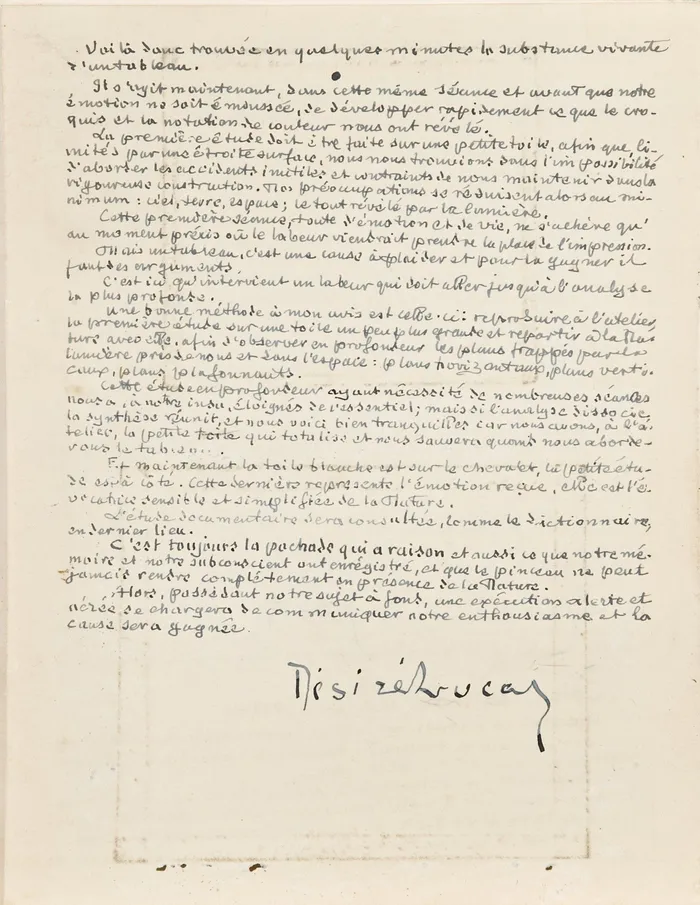 Voilà donc trouvée en quelques minutes la substance vivante
d'un tableau.
Il s'agit maintenant, dans cette même séance et avant que notre
émotion ne soit émoussée, de développer rapidement ce que le cro-
quis et la notation de couleur nous ont révélé.
La première étude doit être faite sur une petite toile, afin que, li-
mités par une étroite surface, nous nous trouvions dans l'impossibilité
d'aborder les accidents inutiles et contraints de nous maintenir dans la
vigoureuse construction. Nos préoccupations se réduisent alors au mi-
nimum : ciel, terre, espace ; le tout révélé par la lumière.
Cette première séance, toute d'émotion et de vie, ne s'achève qu'
au moment précis où le labeur viendrait prendre la place de l'impression.
Mais un tableau, c'est une cause à plaider et pour la gagner il
faut des arguments.
C'est ici qu'intervient un labeur qui doit aller jusqu'à l'analyse
la plus profonde.
Une bonne méthode à mon avis est celle-ci : reproduire à l'atelier,
la première étude sur une toile un peu plus grande et repartir à la Na-
ture avec elle, afin d'observer en profondeur les plans frappés par la
lumière près de nous et dans l'espace : plans horizontaux, plans verti-
caux, plans plafonnants.
Cette étude en profondeur ayant nécessité de nombreuses séances
nous a, à notre insu, éloignés de l'essentiel ; mais si l'analyse dissocie,
la synthèse réunit, et nous voici bien tranquilles car nous avons, à l'a-
telier, la petite toile qui totalise et nous sauvera quand nous aborde-
rons le tableau...
Et maintenant la toile blanche est sur le chevalet, la petite étu-
de est à côté. Cette dernière représente l'émotion reçue, elle est l'é-
vocatrice sensible et simplifiée de la Nature.
L'étude documentaire sera consultée, comme le dictionnaire,
en dernier lieu.
C'est toujours la pochade qui a raison et aussi ce que notre mé-
moire et notre subconscient ont enregistré, et que le pinceau ne peut
jamais rendre complètement en présence de la Nature.
Alors, possédant notre sujet à fond, une exécution alerte et
aérée se chargera de communiquer notre enthousiasme et la
cause sera gagnée.
Désiré Lucas